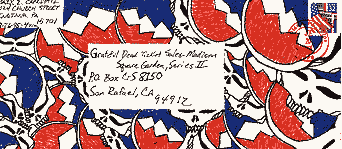 CHURCH STREET
Grateful Dead Ticket Sales-Madison
Square Garden, Series II
PO Box CS 8150
San Rafael, CA
94912